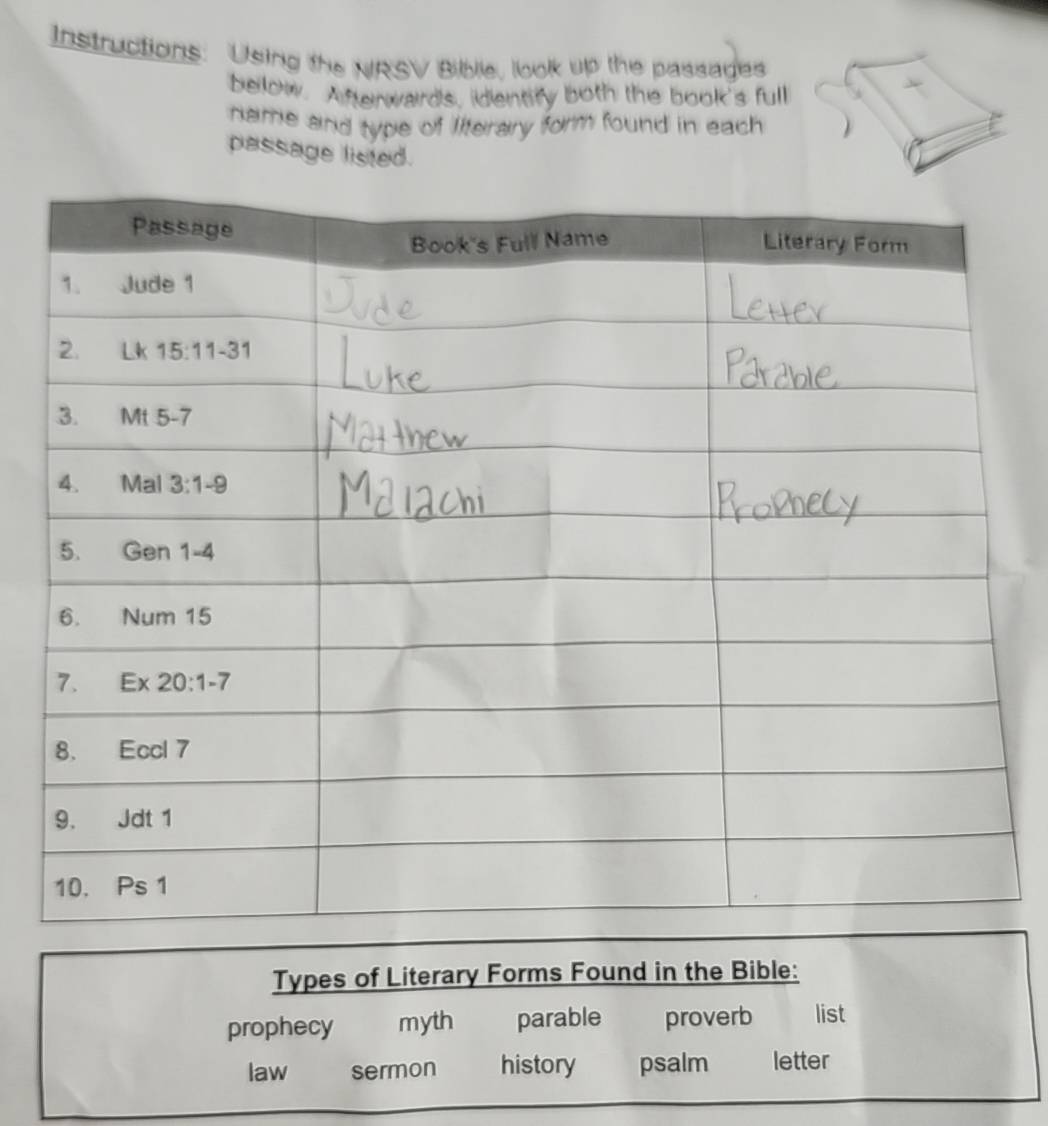 Instructions: Using the NRSV Bible, look up the passages
below. Afterwards, identify both the book's full
name and type of literary form found in each
passage listed.
Passage Book's Full Name Literary Form
1. Jude 1 Jude Letter
2. Lk 15:11-31 Luke Parable
3. Mt 5-7 Matthew
4. Mal 3:1-9 Malachi Prophecy
5. Gen 1-4
6. Num 15
7. Ex 20:1-7
8. Eccl 7
9. Jdt 1
10. Ps 1
Types of Literary Forms Found in the Bible:
prophecy myth parable proverb list
law sermon history psalm letter